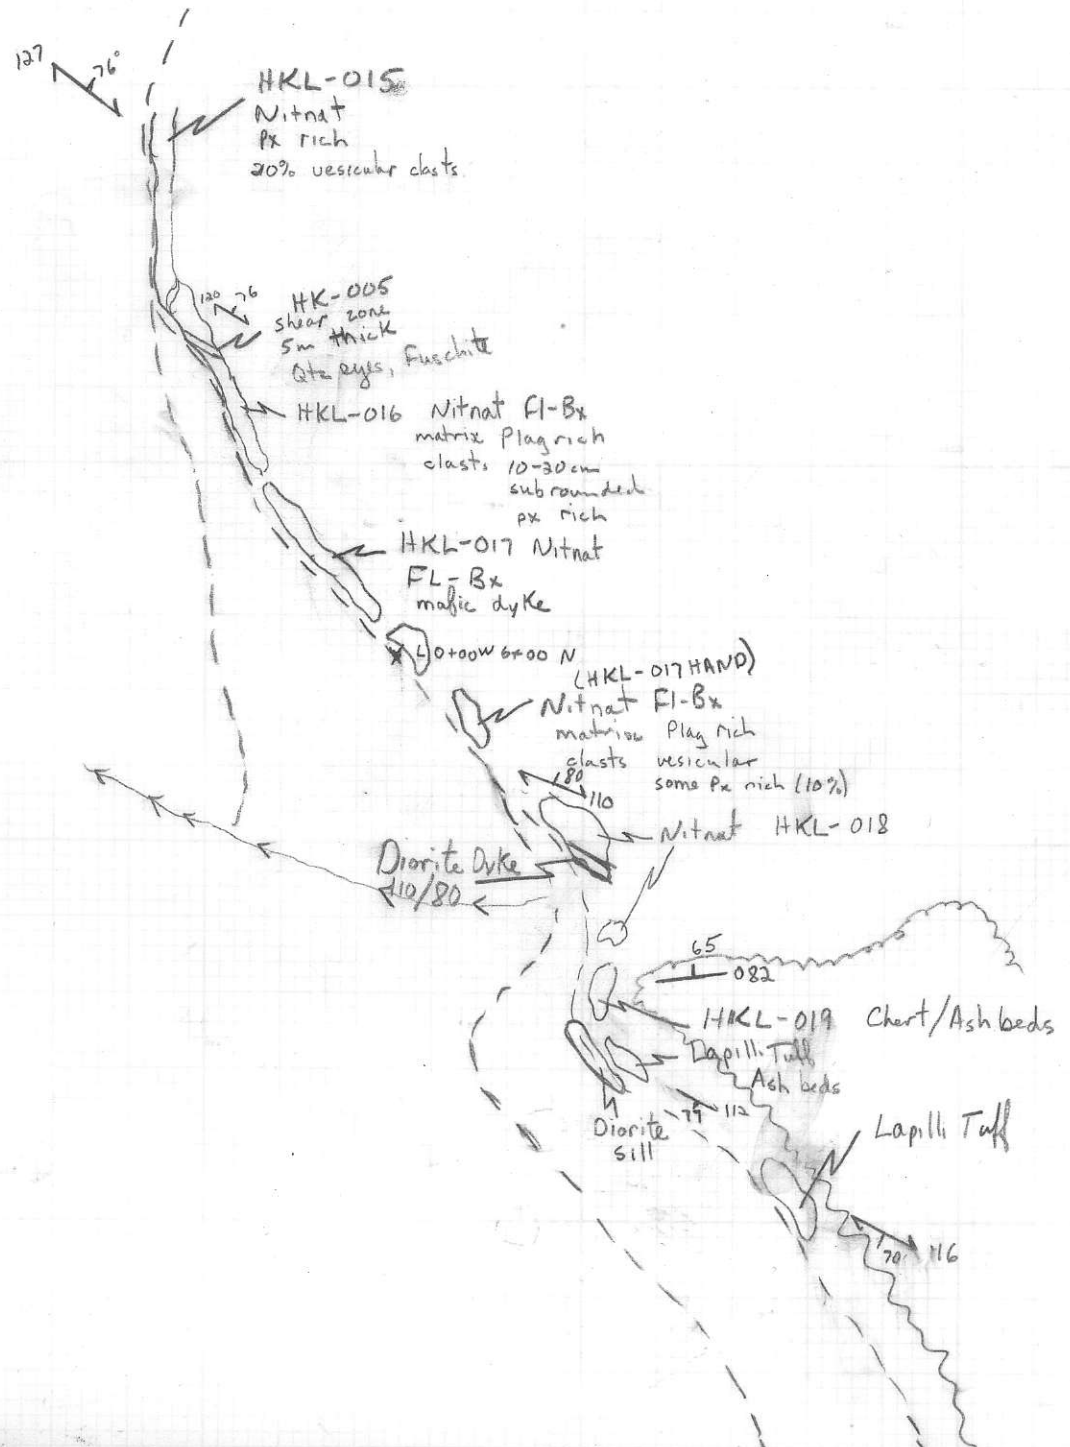 127
76°
HKL-015
Nitnat
Px rich
20% vesicular clasts
120 76
HK-005
shear zone
5m thick
Qtz eyes, Fuschite
HKL-016 Nitnat Fl-Bx
matrix Plag rich
clasts 10-20cm
subrounded
px rich
HKL-017 Nitnat
FL-Bx
mafic dyke
L0+00W 6+00 N
(HKL-017 HAND)
Nitnat Fl-Bx
matrix Plag rich
clasts vesicular
some Px rich (10%)
80
110
Nitnat HKL-018
Diorite Dyke
110/80
65
082
HKL-019 Chert/Ash beds
Lapilli Tuff
Ash beds
79 112
Diorite
sill
Lapilli Tuff
70 116